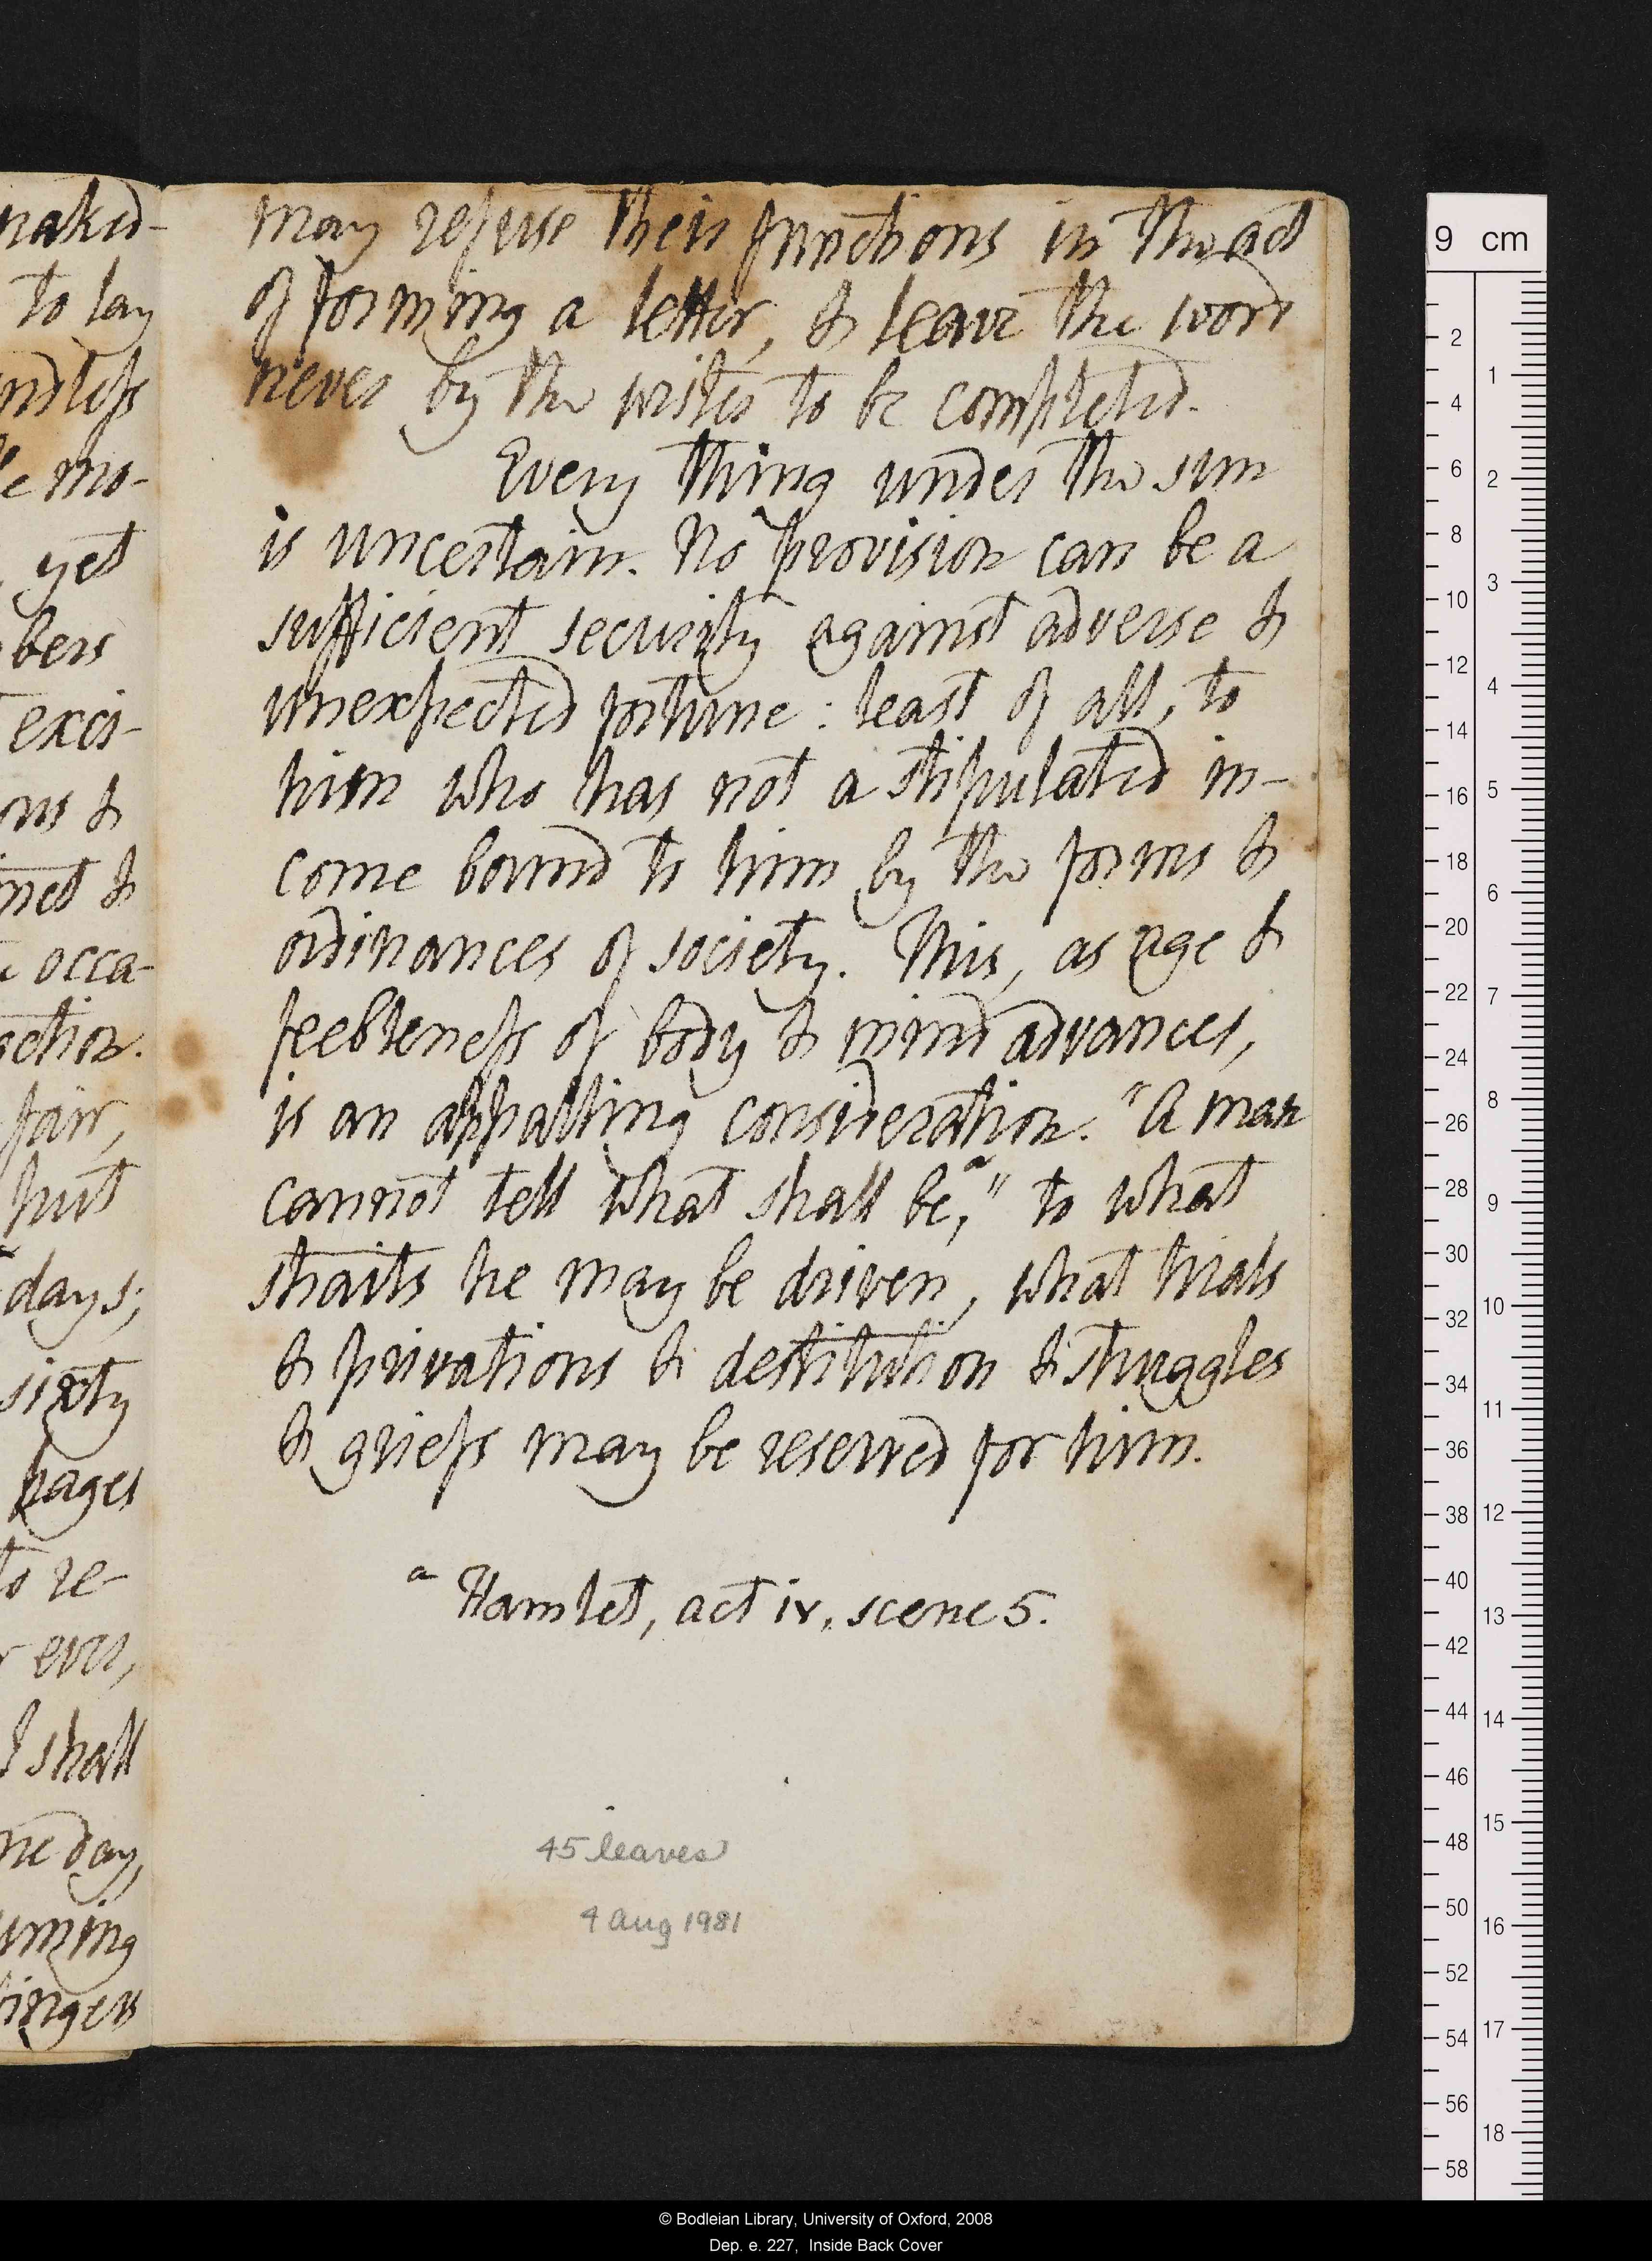 naked-
to lay
endless
le mo-
, yet
bers
exer-
ons &
ned &
occa-
action.
fair,
put
days;
sixty
pages
to re-
ever,
I shall
ne day,
uming
fingers
may refuse their functions in the act
of forming a letter, & leave the word
never by the writer to be completed.
Every thing under the sun
is uncertain. No provision can be a
sufficient security against adverse &
unexpected fortune: least of all, to
him who has not a stipulated in-
come bound to him by the forms &
ordinances of society. This, as age &
feebleness of body & mind advances,
is an appalling consideration. "A man
cannot tell what shall be,ª" to what
straits he may be driven, what trials
& privations & destitution & struggles
& griefs may be reserved for him.
ª Hamlet, act iv, scene 5.
45 leaves
4 Aug 1981
9 cm
2
4
6
8
10
12
14
16
18
20
22
24
26
28
30
32
34
36
38
40
42
44
46
48
50
52
54
56
58
1
2
3
4
5
6
7
8
9
10
11
12
13
14
15
16
17
18
© Bodleian Library, University of Oxford, 2008
Dep. e. 227, Inside Back Cover